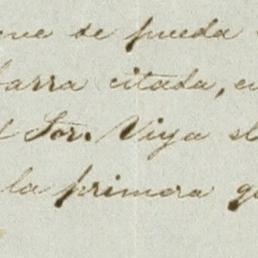 que se pueda
barra citada, en
el Sor. Viya el
la primera